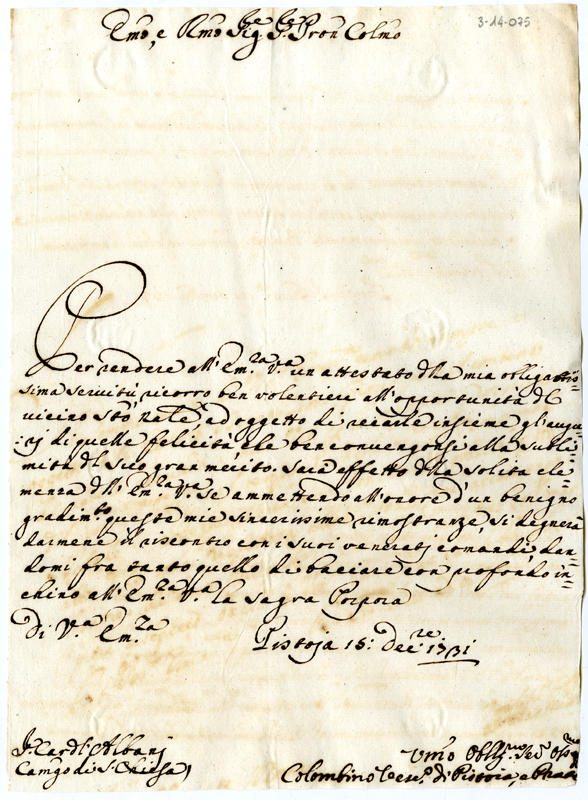 3-14-075
Emo, e Rmo Sig.re Sig.r Pron Colmo
Per rendere all'Em.za V.ra un attestato della mia obligatis=
sima servitù ricorro ben volentieri all'opportunità del
vicino Sto Natle, ad oggetto di recarle insieme gl'augu=
:rj di quelle felicità che ben convengonsi alla subli=
mità del suo gran merito. Sarà effetto della solita cle=
menza dell'Em.za V.ra se ammettendo all'onore d'un benigno
gradim.to queste mie sincerissime rimostranze, si degnerà
darmene il riscontro con i suoi veneratj comandi, dan=
domi fra tanto quello di bacciare con profondo in=
chino all'Em.za V.ra la sagra Porpora
Di V.ra Em.za
Pistoja 15: Dec.re 1731
Sr Cardl: Albanj
Camgo di S: Chiesa
Umo Oblig.mo Ser Oss.mo
Colombino Vesc.o di Pistoia, e Prato